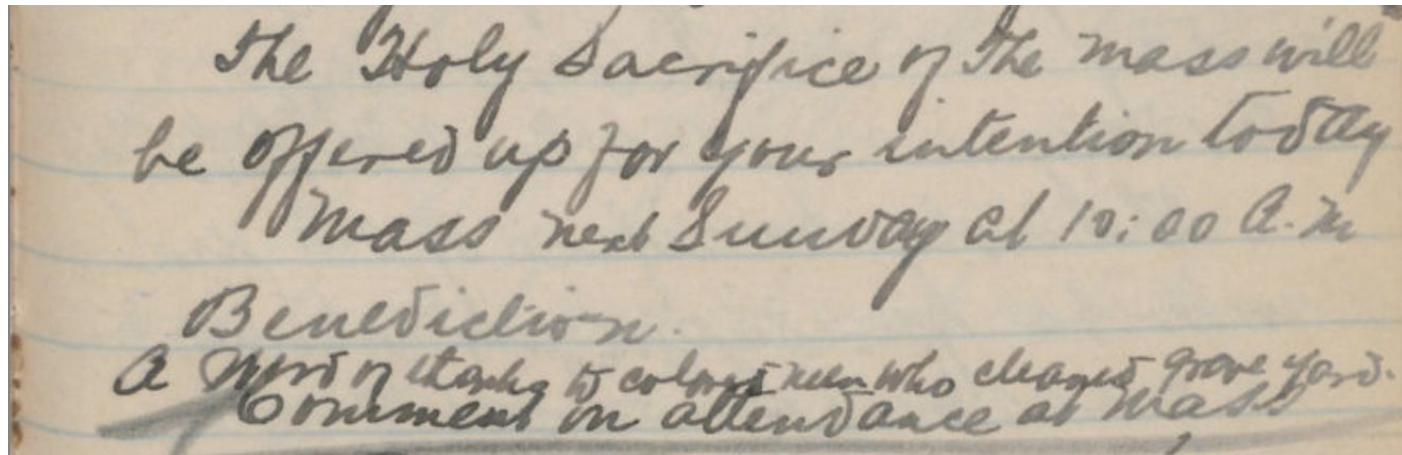 the Holy Sacrifice of the mass will
be offered up for your intention today
Mass next Sunday at 10:00 A.M
Benediction.
A Word of thanks to colored men who cleaned grave yard.
Comment on attendance at Mass